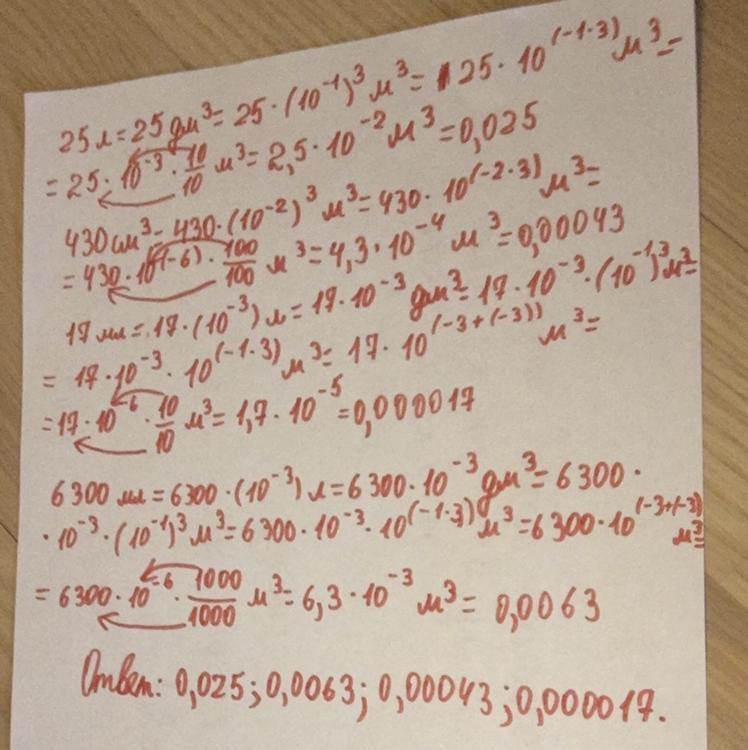 25 л = 25 дм³ = 25 · (10⁻¹)³ м³ = 25 · 10⁽⁻¹·³⁾ м³ =
= 25 · 10⁻³ · 10/10 м³ = 2,5 · 10⁻² м³ = 0,025
430 см³ = 430 · (10⁻²)³ м³ = 430 · 10⁽⁻²·³⁾ м³ =
= 430 · 10⁽⁻⁶⁾ · 100/100 м³ = 4,3 · 10⁻⁴ м³ = 0,00043
17 мл = 17 · (10⁻³) л = 17 · 10⁻³ дм³ = 17 · 10⁻³ · (10⁻¹)³ м³ =
= 17 · 10⁻³ · 10⁽⁻¹·³⁾ м³ = 17 · 10⁽⁻³⁺⁽⁻³⁾⁾ м³ =
= 17 · 10⁻⁶ · 10/10 м³ = 1,7 · 10⁻⁵ = 0,000017
6300 мл = 6300 · (10⁻³) л = 6300 · 10⁻³ дм³ = 6300 ·
· 10⁻³ · (10⁻¹)³ м³ = 6300 · 10⁻³ · 10⁽⁻¹·³⁾ м³ = 6300 · 10⁽⁻³⁺⁽⁻³⁾ м³ =
= 6300 · 10⁻⁶ · 1000/1000 м³ = 6,3 · 10⁻³ м³ = 0,0063
Ответ: 0,025; 0,0063; 0,00043; 0,000017.